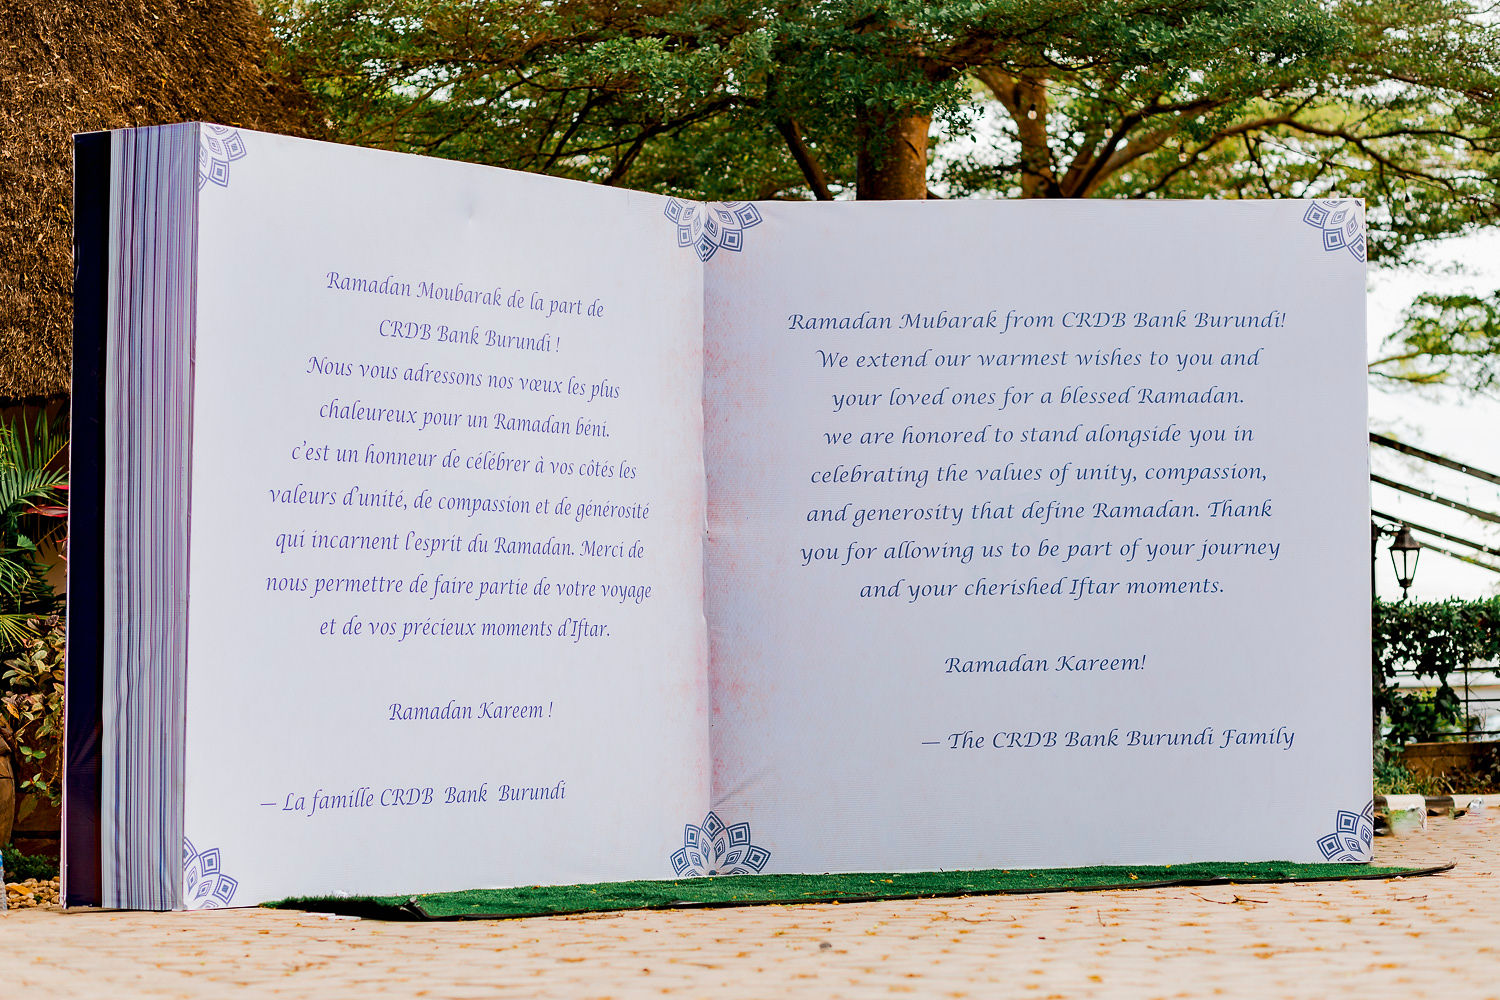 Ramadan Moubarak de la part de
CRDB Bank Burundi !
Nous vous adressons nos vœux les plus
chaleureux pour un Ramadan béni.
c'est un honneur de célébrer à vos côtés les
valeurs d'unité, de compassion et de générosité
qui incarnent l'esprit du Ramadan. Merci de
nous permettre de faire partie de votre voyage
et de vos précieux moments d'Iftar.
Ramadan Kareem !
— La famille CRDB Bank Burundi
Ramadan Mubarak from CRDB Bank Burundi!
We extend our warmest wishes to you and
your loved ones for a blessed Ramadan.
we are honored to stand alongside you in
celebrating the values of unity, compassion,
and generosity that define Ramadan. Thank
you for allowing us to be part of your journey
and your cherished Iftar moments.
Ramadan Kareem!
— The CRDB Bank Burundi Family